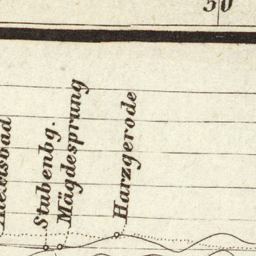 50
Stubenbg.
Mägdesprung
Harzgerode